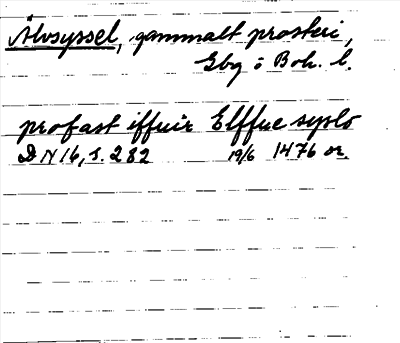 Älvsyssel, gammalt prosteri,
Gbg o Boh. l.
profast iffuir Elffue syslo
DN 16, s. 282 19/6 1476 or.